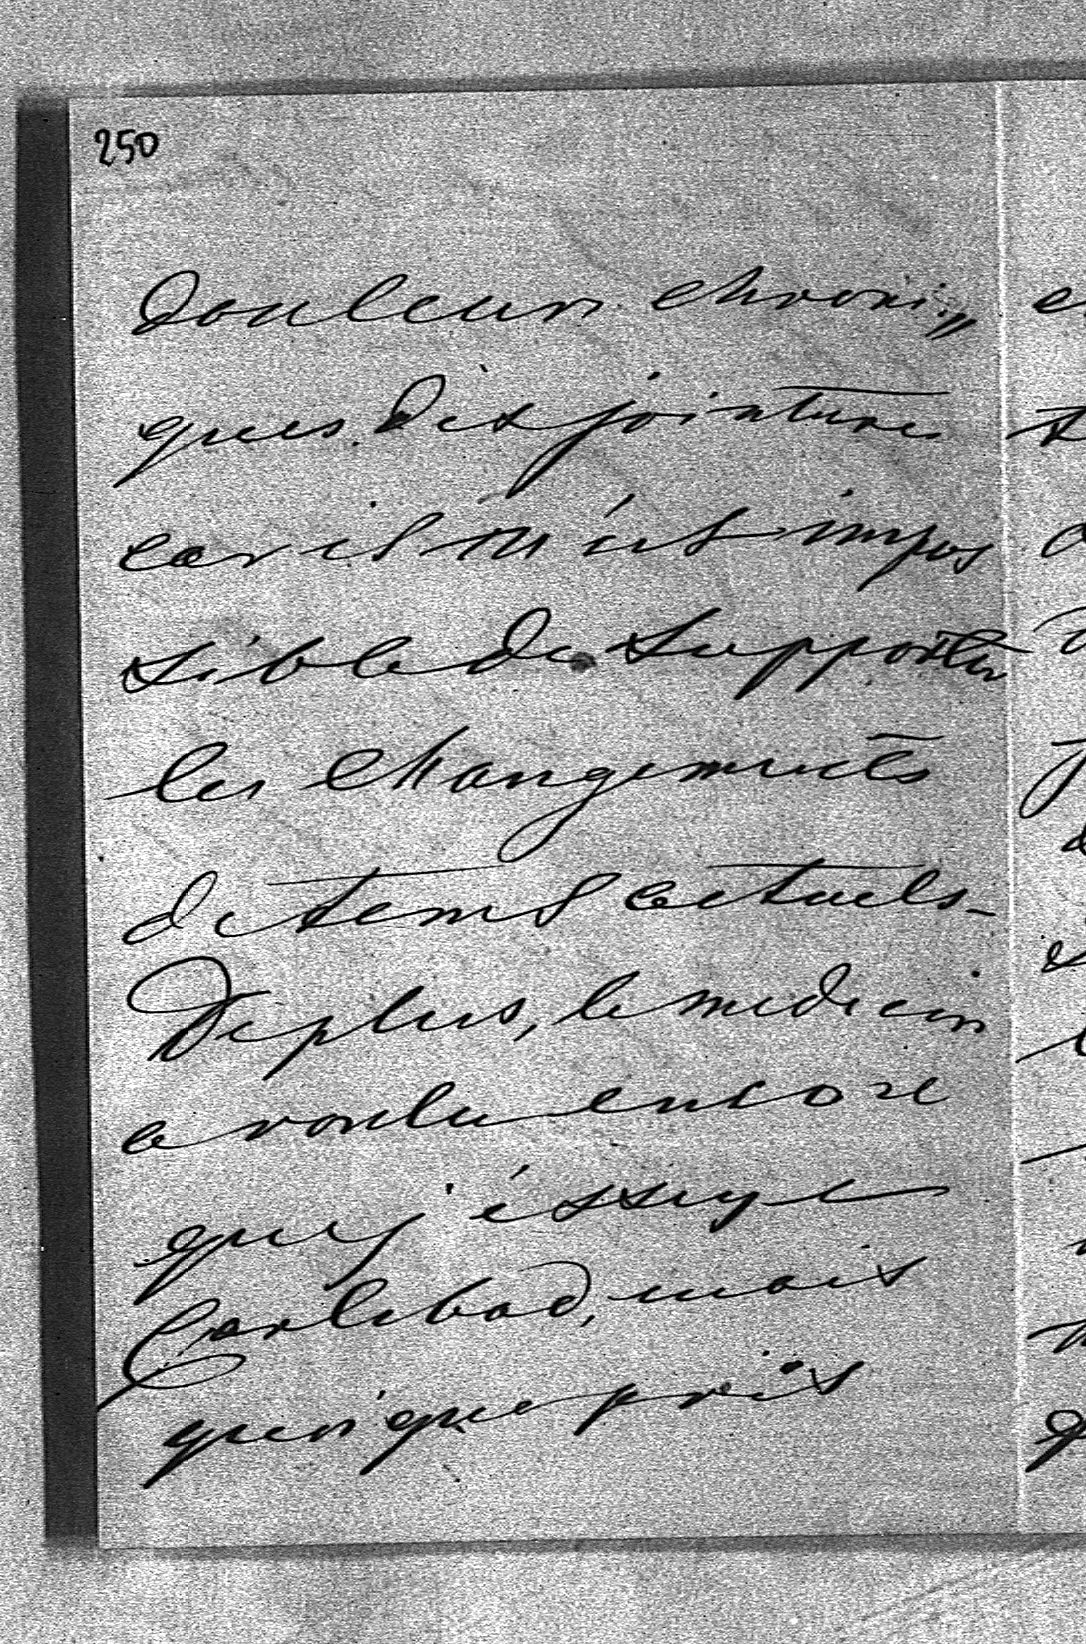 250
douleurs chroni„
ques des jointures
car il m'est impos
sible de supporter
les changements
de tems actuels –
De plus, le medecin
a voulu encore
que j'éssuye
Carlsbad, mais
quoique pris